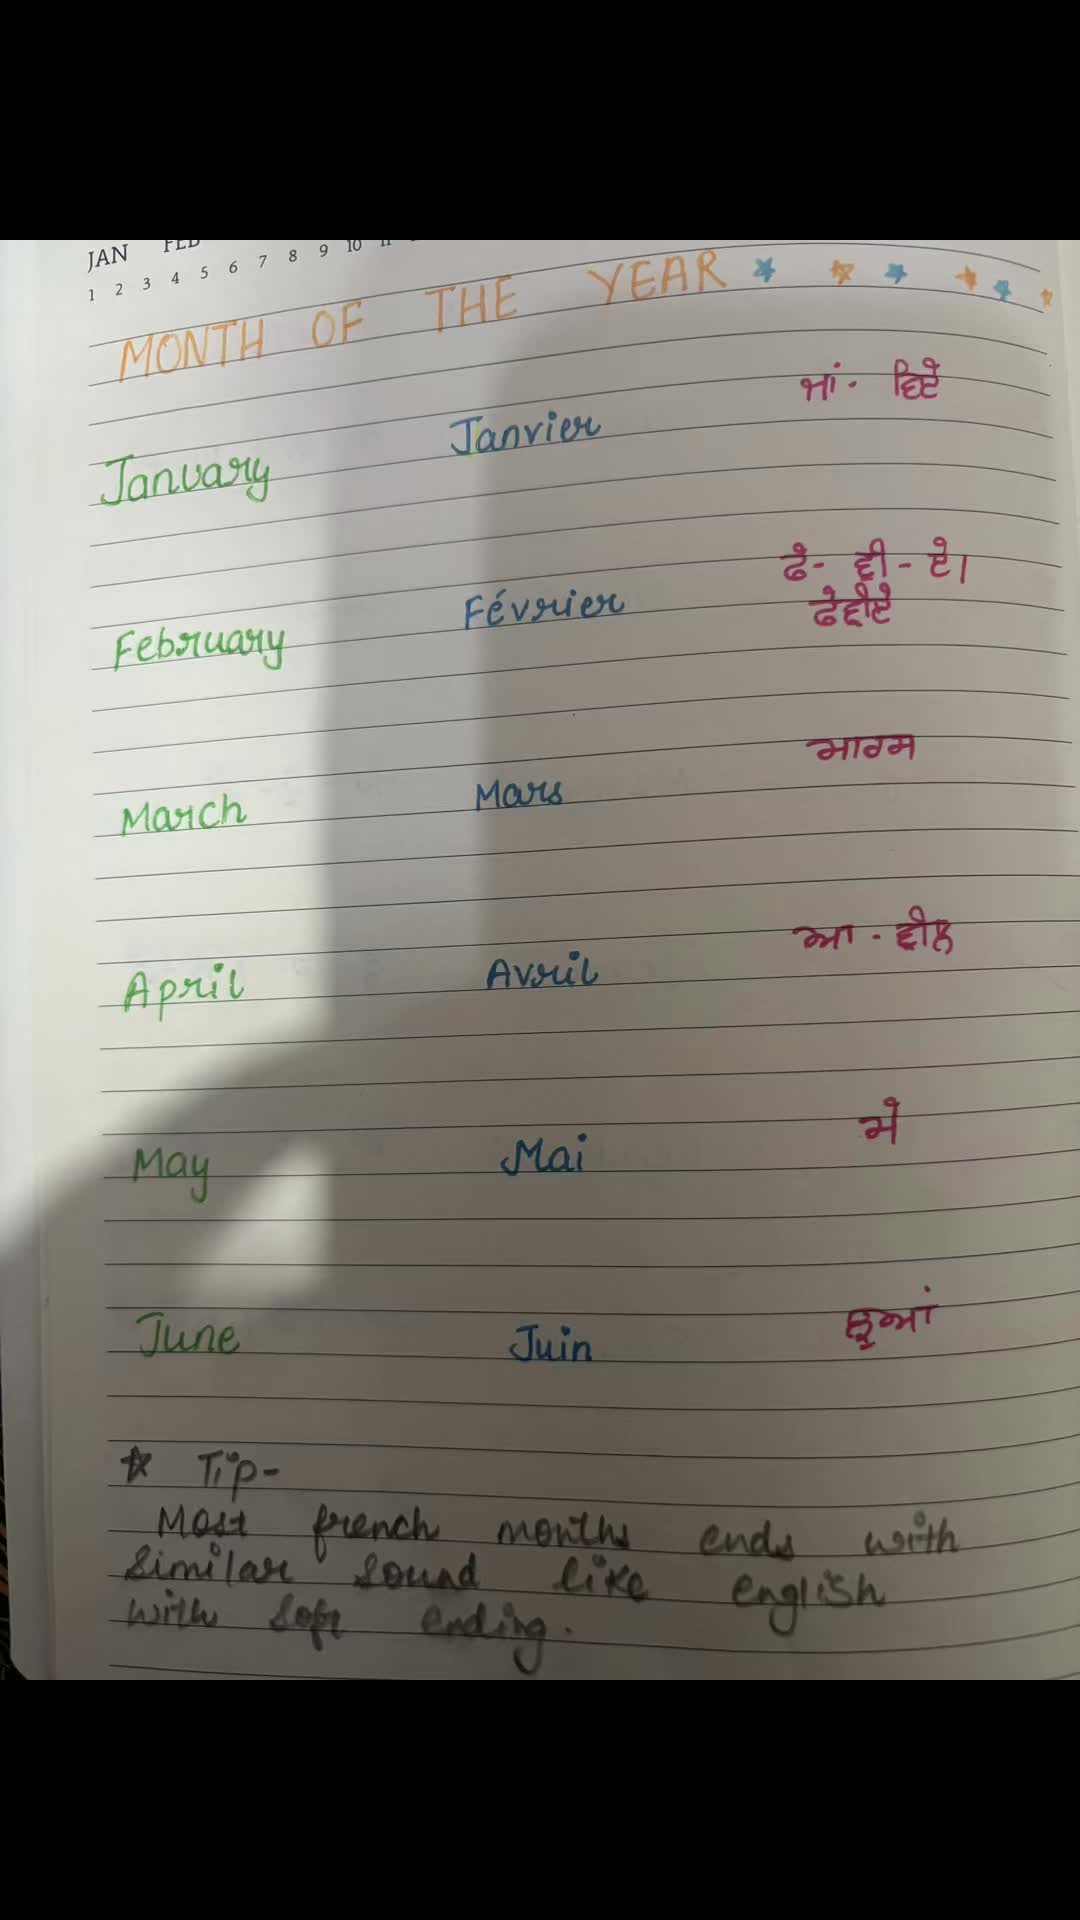 JAN FEB
1 2 3 4 5 6 7 8 9 10 11
MONTH OF THE YEAR
January Janvier ਜਾਂ- ਵਿਏ
February Février ਫੇ- ਵੀ - ਏ।
ਫੇਵੀਏ
March Mars ਮਾਰਸ
April Avril ਆ - ਵੀਲ
May Mai ਮੇ
June Juin ਜੂਆਂ
Tip-
Most french months ends with
similar sound like english
with soft ending.